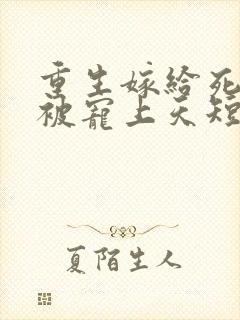 重生嫁给死
被宠上天短
夏陌生人